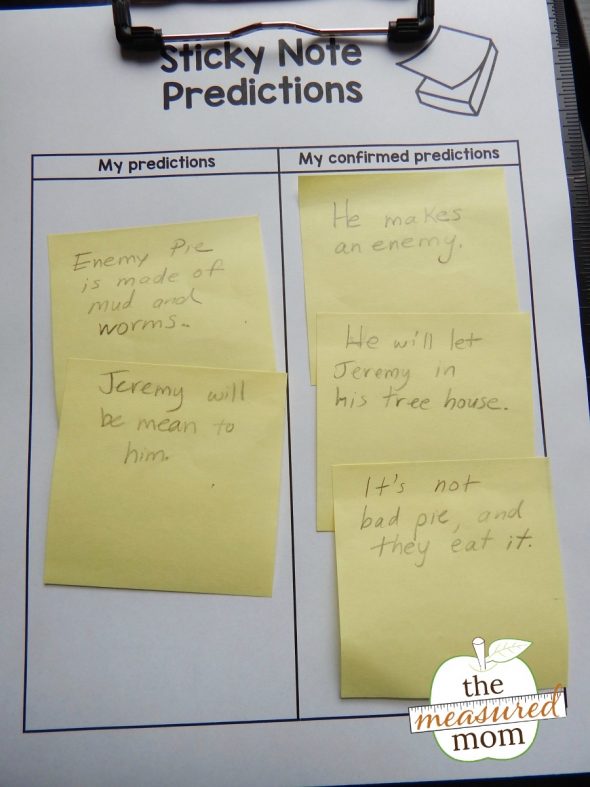 Sticky Note
Predictions
My predictions
My confirmed predictions
Enemy Pie
is made of
mud and
worms.
Jeremy will
be mean to
him.
He makes
an enemy.
He will let
Jeremy in
his tree house.
It's not
bad pie, and
they eat it.
the
measured
mom